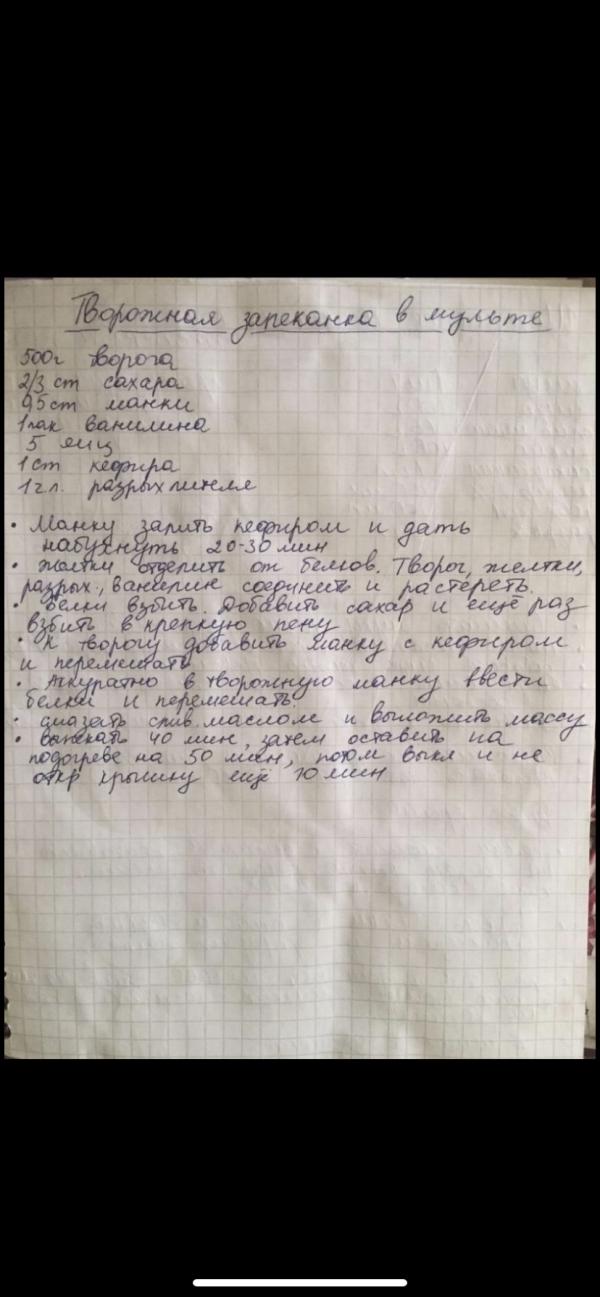 Творожная запеканка в мульте
500г творога
2/3 ст сахара
0,5 ст манки
1 пак ванилина
5 яиц
1 ст кефира
1 ч л. разрыхлителя
• Манку залить кефиром и дать
набухнуть 20-30 мин
• Желтки отделить от белков. Творог, желтки,
разрых., ванилин соединить и растереть.
• Белки взбить. Добавить сахар и ещё раз
взбить в крепкую пену
• К творогу добавить манку с кефиром
и перемешать
• Аккуратно в творожную манку ввести
белки и перемешать.
• Смазать слив. маслом и выложить массу
• Выпекать 40 мин, затем оставить на
подогреве на 50 мин, потом выкл и не
откр крышку ещё 10 мин